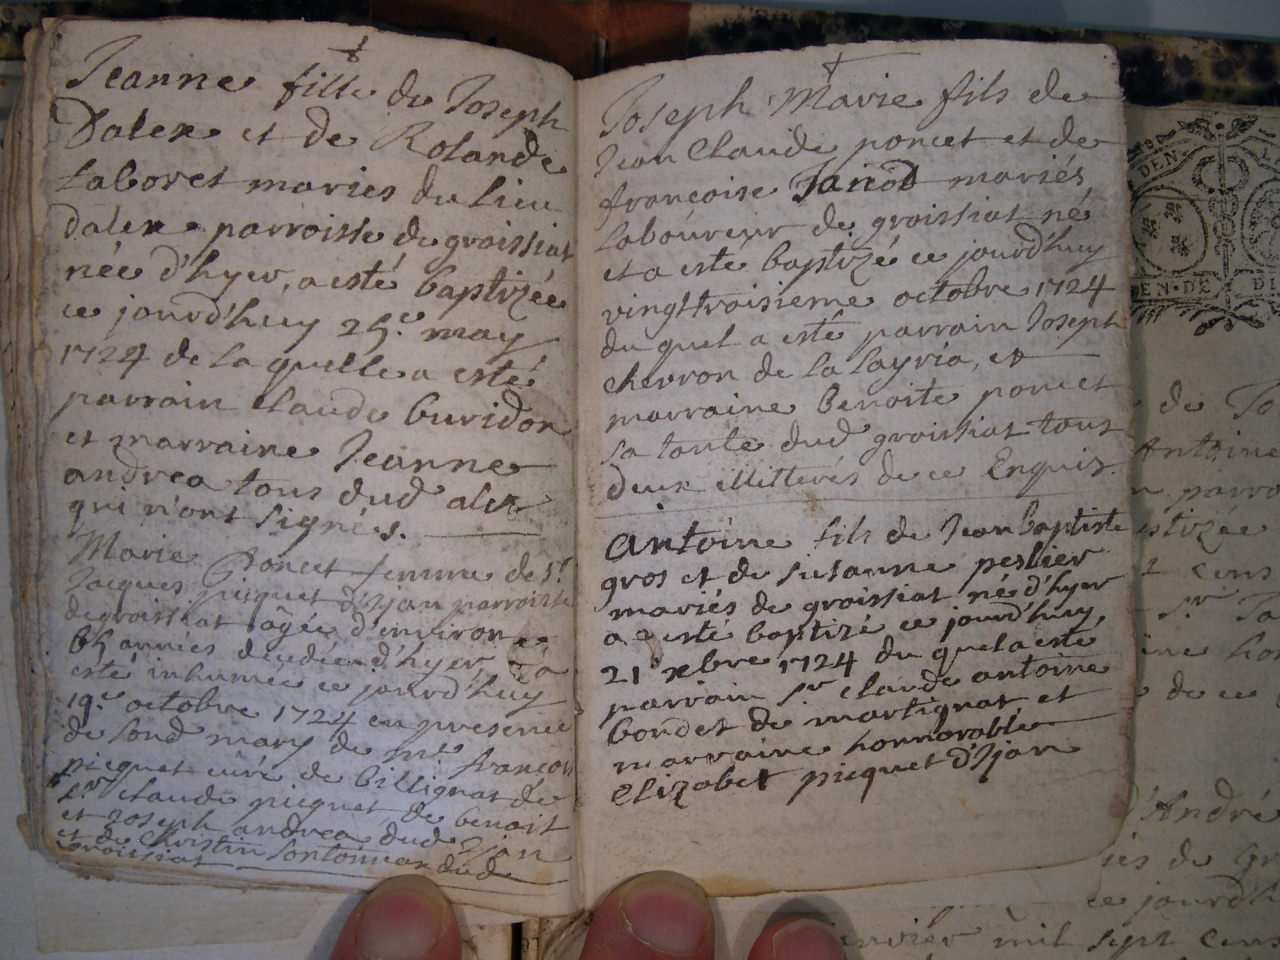 Jeanne fille de Joseph
Dalex et de Rolande
Laboret maries du lieu
Dalex parroisse de groissiat
née d'hyer, a esté baptizée
ce jourd'huy 25.e may
1724 de la quelle a esté
parrain Claude buridon
et marraine Jeanne
andrea tous dud alex
qui n'ont signés.
Marie Poncet femme de Sr.
Jacques picquet d'Ijan parroisse
de groissiat âgée d'environ
65 années décédée d'hyer, a
esté inhumée ce jourd'huy
19.e octobre 1724 en presence
de sond mary de mre. françois
picquet curé de billignat de
Sr. claude picquet de benoit
et Joseph andrea dud Ijan
et de Christin dud
groissiat
Joseph Marie fils de
Jean Claude poncet et de
françoise Janod mariés
laboureur de groissiat né
et a esté baptizé ce jourd'huy
vingt troisieme octobre 1724
du quel a esté parrain Joseph
chevron de la layria, et
marraine benoite poncet
sa tante dud groissiat tous
deux illiterés de ce Enquis.
Antoine fils de Jean baptiste
gros et de susanne peslier
mariés de groissiat né d'hyer
a esté baptizé ce jourd'huy,
21e xbre 1724 du quel a esté
parrain Sr claude antoine
bondet de martignat et
marraine honnorable
Elizabet picquet d'Ijan
DEN
EN·DE
DI
de Jo
Antoine
parro
de ce
d'André
és de gr
ce jourd'h
janvier mil sept cens